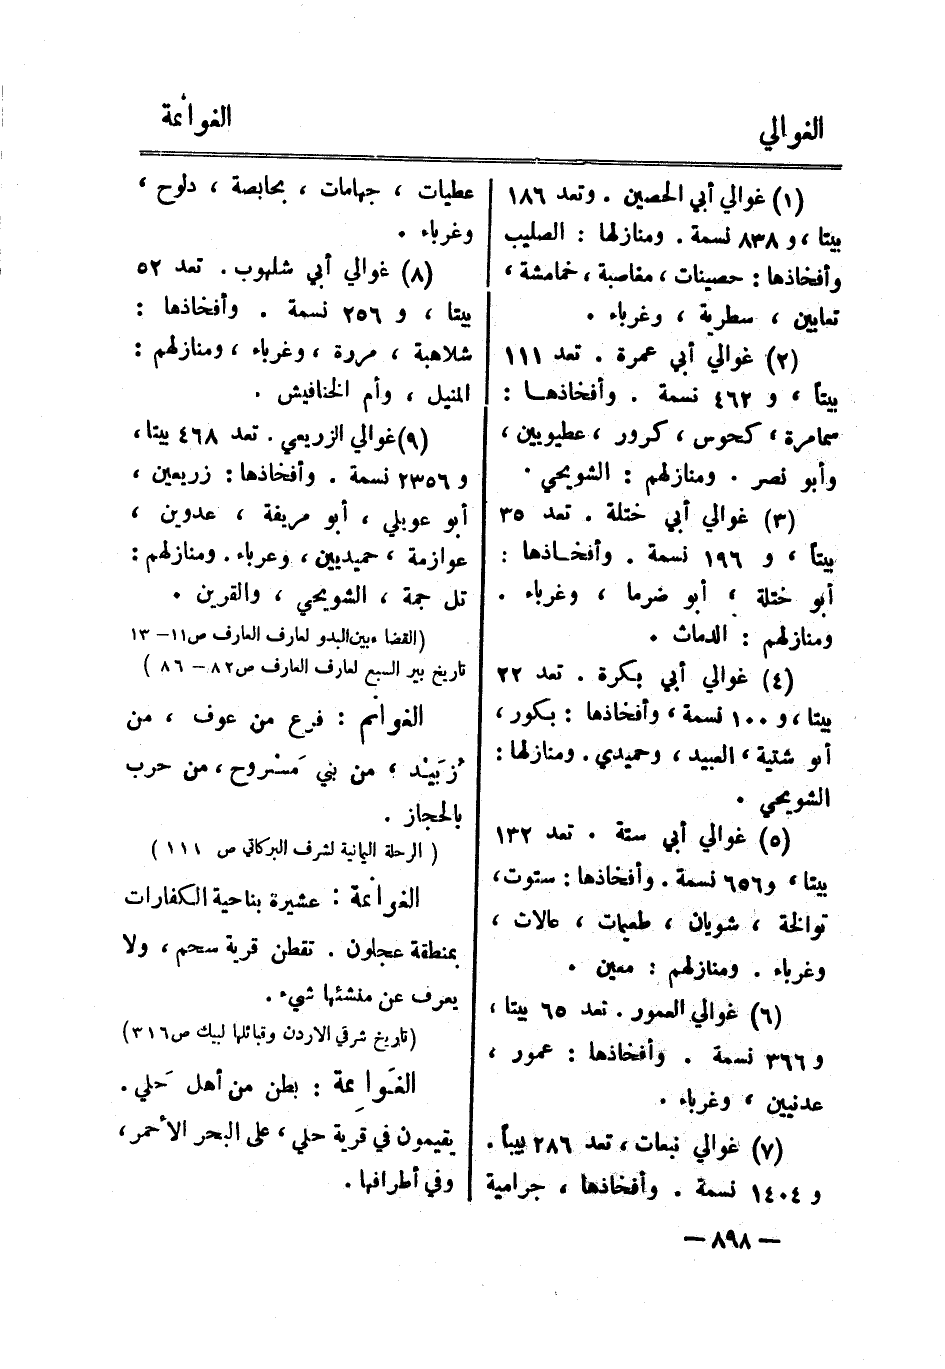 الغوالي
الغوائمة
(١) غوالي أبي الحصين . وتعد ١٨٦
بيتا ، و ٨٣٨ نسمة . ومنازلها : الصليب
وأفخاذها : حصينات ، مقاصبة ، خمامشة ،
تعابين ، سطرية ، وغرباء .
(٢) غوالي أبي عمرة . تعد ١١١
بيتاً ، و ٤٦٢ نسمة . وأفخاذهـا :
سمامرة ، كحوس ، كرور ، عطيويين ،
وأبو نصر . ومنازلهم : الشويحي .
(٣) غوالي أبي ختلة . تعد ٣٥
بيتاً ، و ١٩٦ نسمة . وأفخـاذها :
أبو ختلة ، أبو ضرما ، وغرباء .
ومنازلهم : الدماث .
(٤) غوالي أبي بكرة . تعد ٢٢
بيتا ، و ١٠٠ نسمة ، وأفخاذها : بكور ،
أبو شتية ، العبيد ، وحميدي . ومنازلها :
الشويحي .
(٥) غوالي أبي ستة . تعد ١٣٢
بيتا ، و٦٥٦ نسمة . وأفخاذها : ستوت ،
توالخة ، شويان ، طعيمات ، عالات ،
وغرباء . ومنازلهم : معين .
(٦) غوالي العمور . تعد ٦٥ بيتا ،
و ٣٦٦ نسمة . وأفخاذها : عمور ،
عدنيين ، وغرباء .
(٧) غوالي نبعات ، تعد ٢٨٦ بيباً .
و ١٤٠٤ نسمة . وأفخاذها ، جرامية
عطيات ، جهامات ، بحابصة ، دلوح ،
وغرباء .
(٨) غوالي أبي شلهوب . تعد ٥٢
بيتا ، و ٢٥٦ نسمة . وأفخاذها :
شلاهبة ، مررة ، وغرباء ، ومنازلهم :
المنيل ، وأم الخنافيش .
(٩) غوالي الزريعي . تعد ٤٦٨ بيتا ،
و ٢٣٥٦ نسمة . وأفخاذها : زريعين ،
أبو عويلي ، أبو مريفة ، عدوين ،
عوازمة ، حميديين ، وعرباء . ومنازلهم :
تل جمة ، الشويحي ، والقرين .
(القضاء بين البدو لعارف العارف ص ١١ – ١٣
تاريخ بير السبع لعارف العارف ص ٨٢ – ٨٦ )
الغوانم : فرع من عوف ، من
زُبَيْد ، من بني مَسْروح ، من حرب
بالحجاز .
( الرحلة اليمانية لشرف البركاتي ص ١١١ )
الغوائمة : عشيرة بناحية الكفارات
بمنطقة عجلون . تقطن قرية سحم ، ولا
يعرف عن منشئها شيء .
(تاريخ شرقي الاردن وقبائلها لبيك ص ٣١٦)
الغَوانِمة : بطن من أهل حَلي .
يقيمون في قرية حلي ، على البحر الأحمر ،
وفي أطرافها .
— ٨٩٨ —